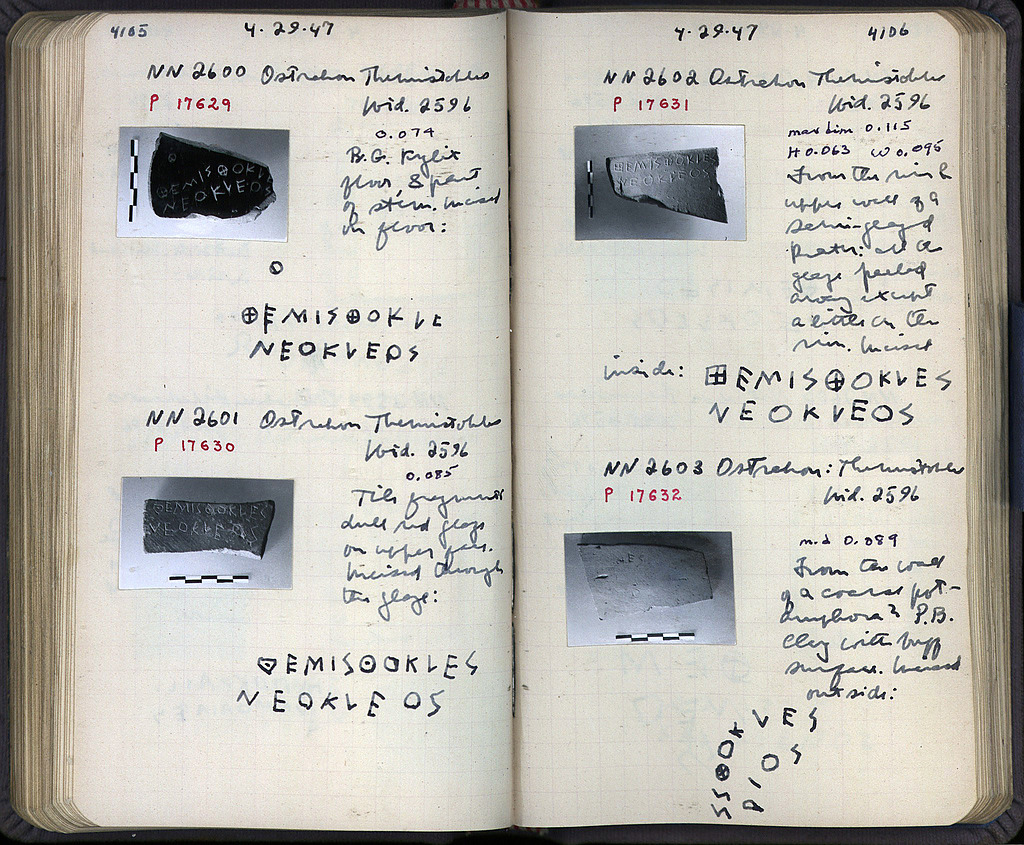 4105
4.29.47
NN 2600 Ostrakon Themistokles
P 17629
Wid. 2596
0.074
B.G. Kylix
floor, & part
of stem. Incised
on floor:
O
⊕EMISΘOKLE
NEOKLEOS
NN 2601 Ostrakon Themistokles
P 17630
Wid. 2596
0.085
Tile fragment
dull red glaze
on upper face.
Incised through
the glaze:
EMISOOKLES
NEOKLEOS
4.29.47
4106
NN 2602 Ostrakon Themistokles
P 17631
Wid. 2596
max dim 0.115
H 0.063 W 0.095
From the rim &
upper wall of a
semi-glazed
krater: all the
glaze peeled
away except
a little on the
rim. Incised
inside:
⊞EMIS⊕OKLES
NEOKLEOS
NN 2603 Ostrakon: Themistokles
P 17632
Wid. 2596
m.d 0.089
From the wall
of a coarse pot-
Amphora? P.B.
Clay with buff
surface. Incised
outside:
SS⊗OKLES
DIOS